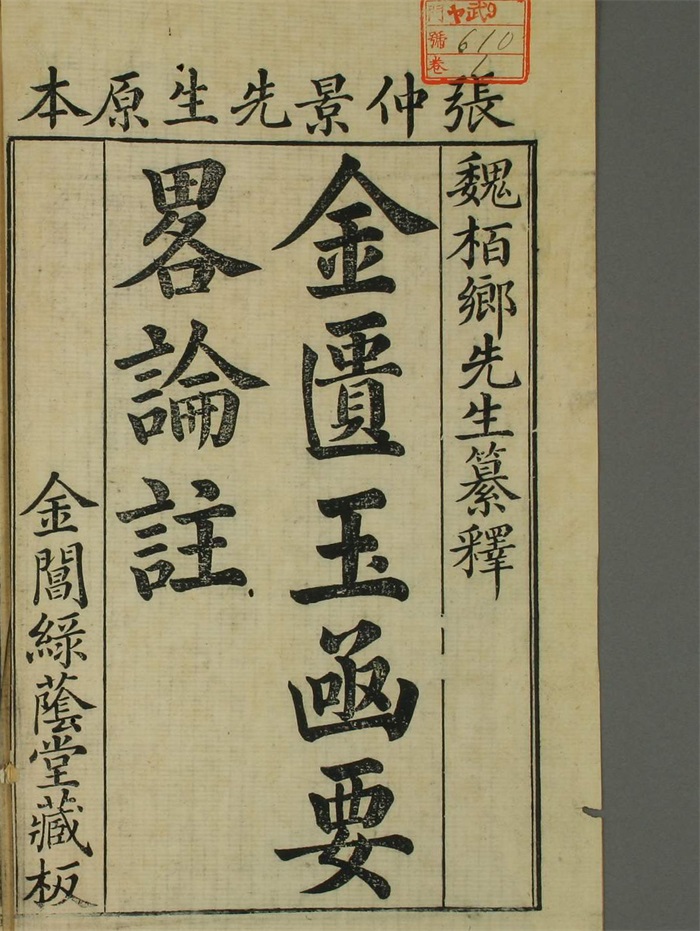 張仲景先生原本
魏栢鄉先生纂釋
金匱玉函要
畧論註
金閶綠蔭堂藏板
門
號 610
卷 1